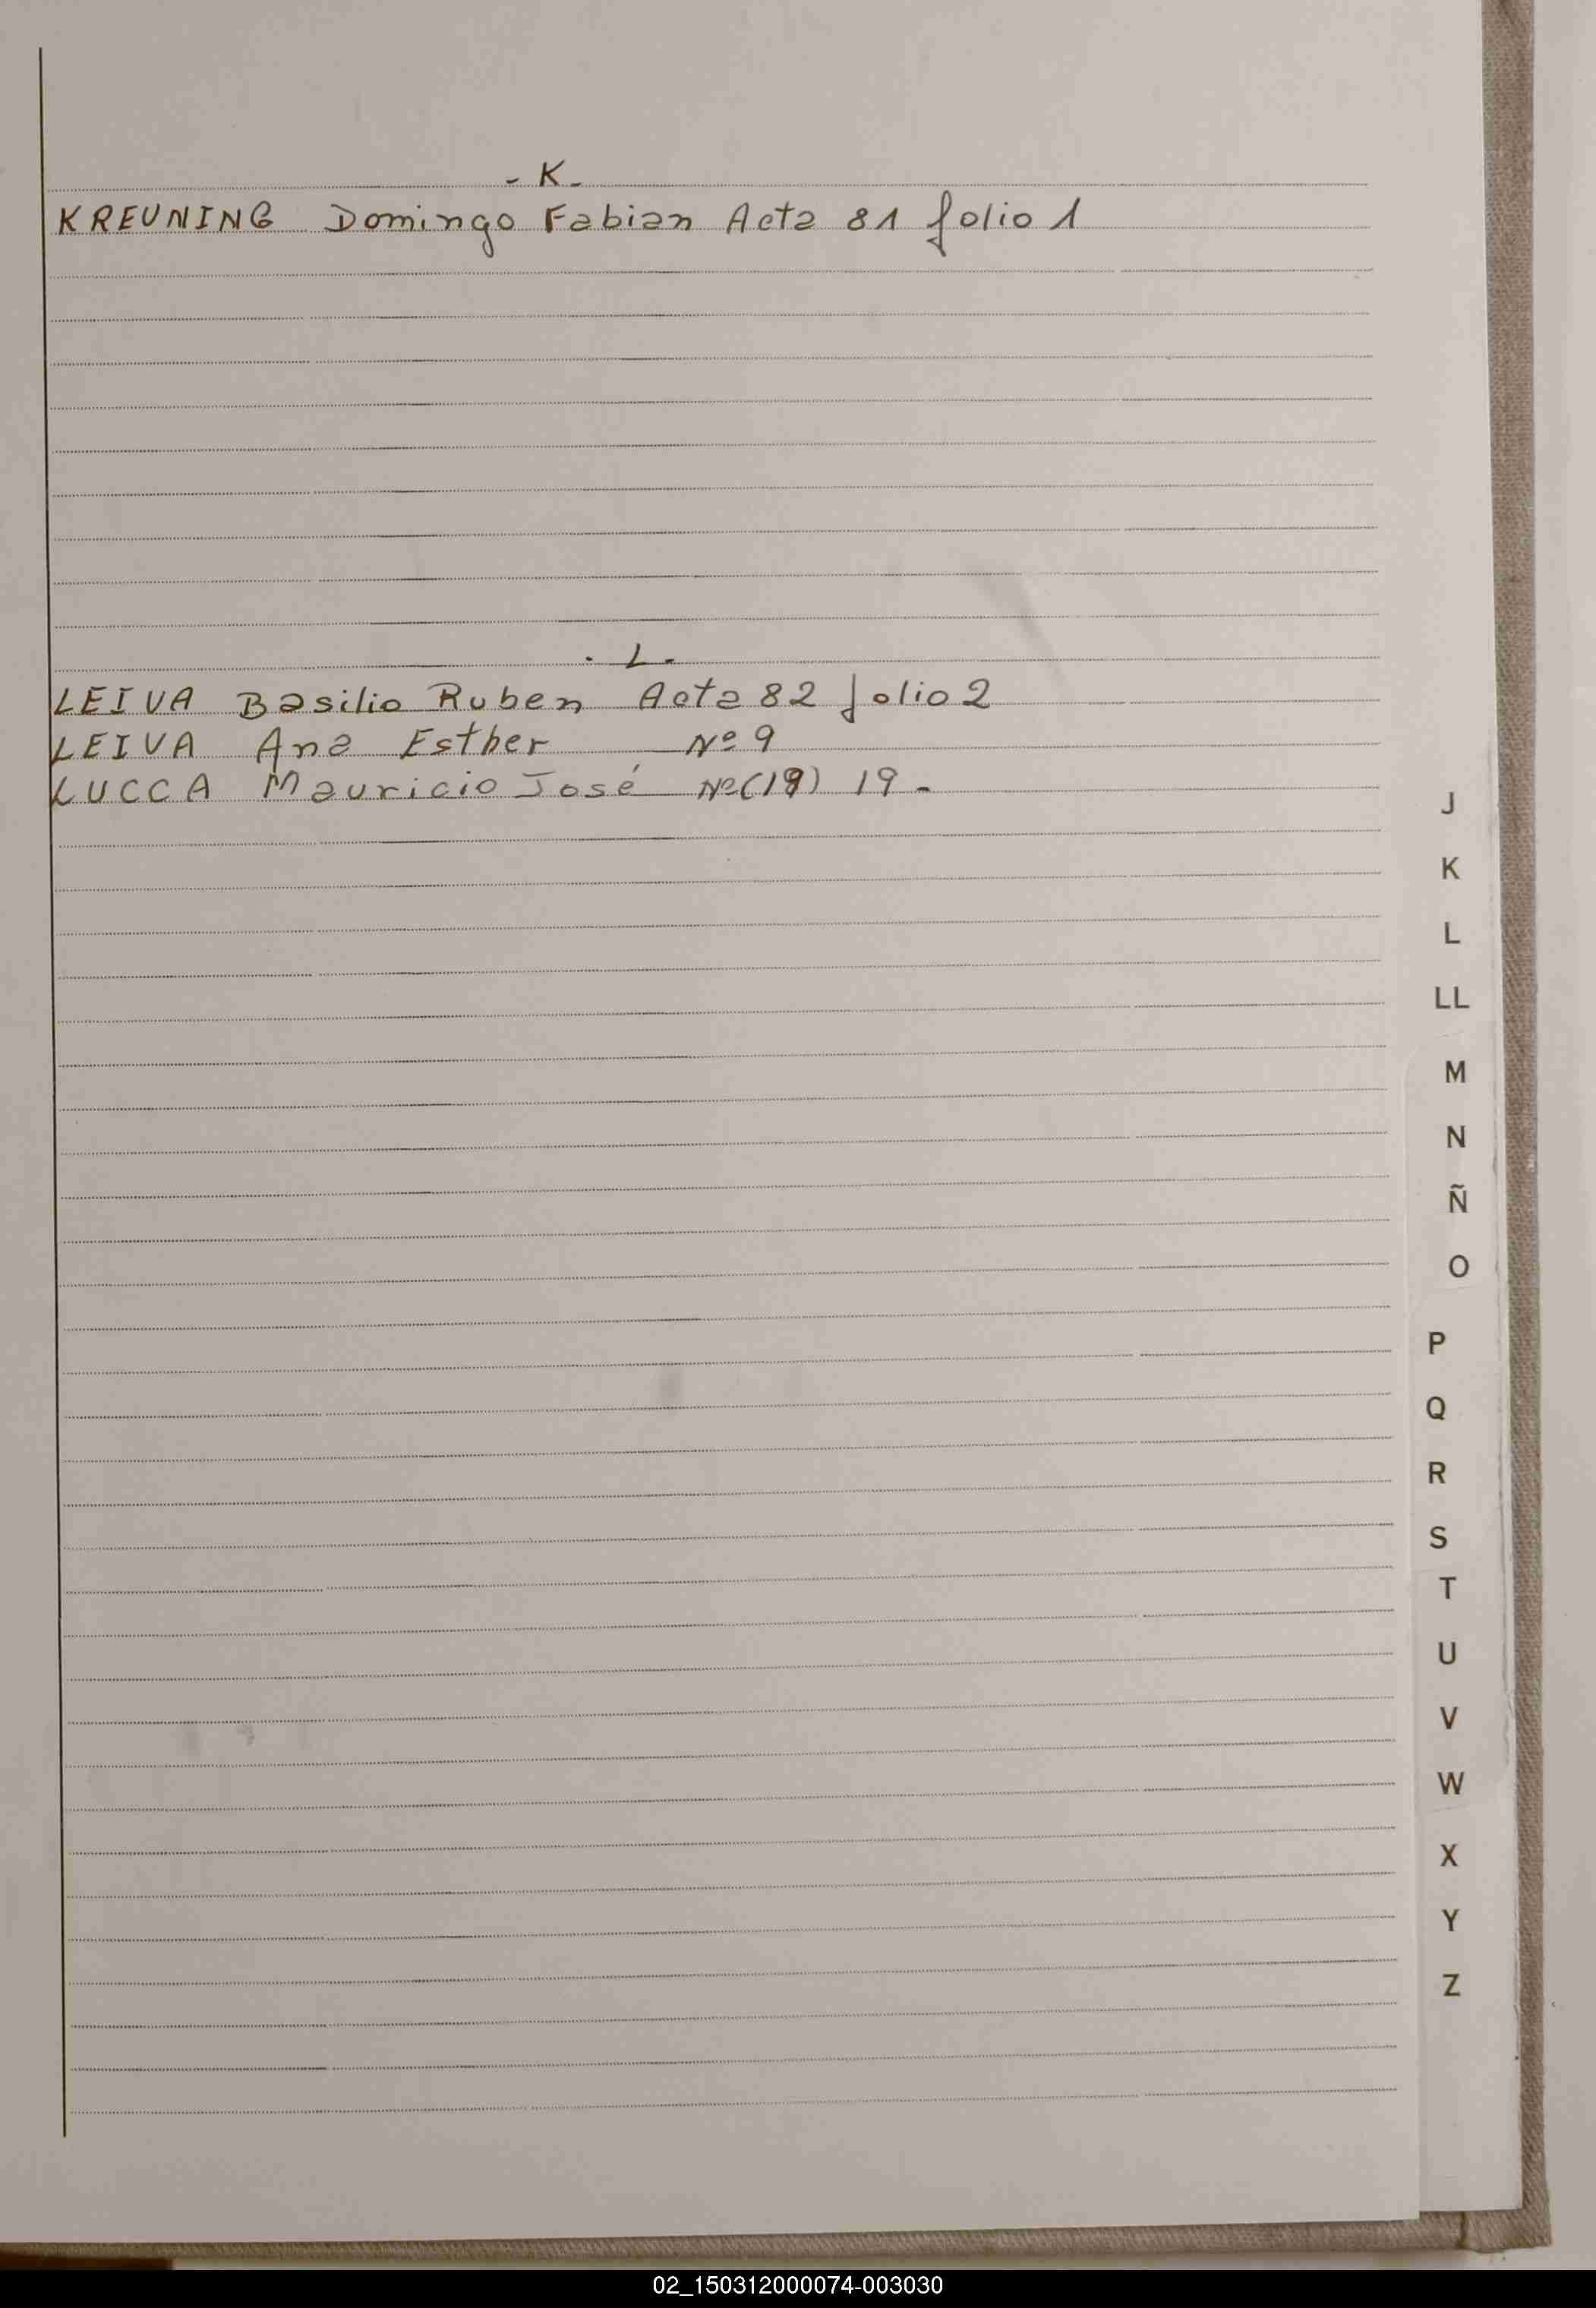 - K -
KREUNING Domingo Fabian Acta 81 folio 1
. L -
LEIVA Basilio Ruben Acta 82 folio 2
LEIVA Ana Esther Nº 9
LUCCA Mauricio José Nº (19) 19 -
J
K
L
LL
M
N
Ñ
O
P
Q
R
S
T
U
V
W
X
Y
Z
02_150312000074-003030